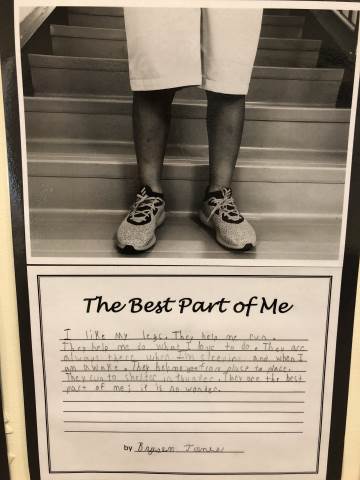 The Best Part of Me
I like my legs. They help me run.
They help me do what I love to do. They are
always there when I'm sleeping and when I
am awake. They help me get from place to place.
They run to shelter in thunder. They are the best
part of me; it is no wonder.
by Brysen Jones